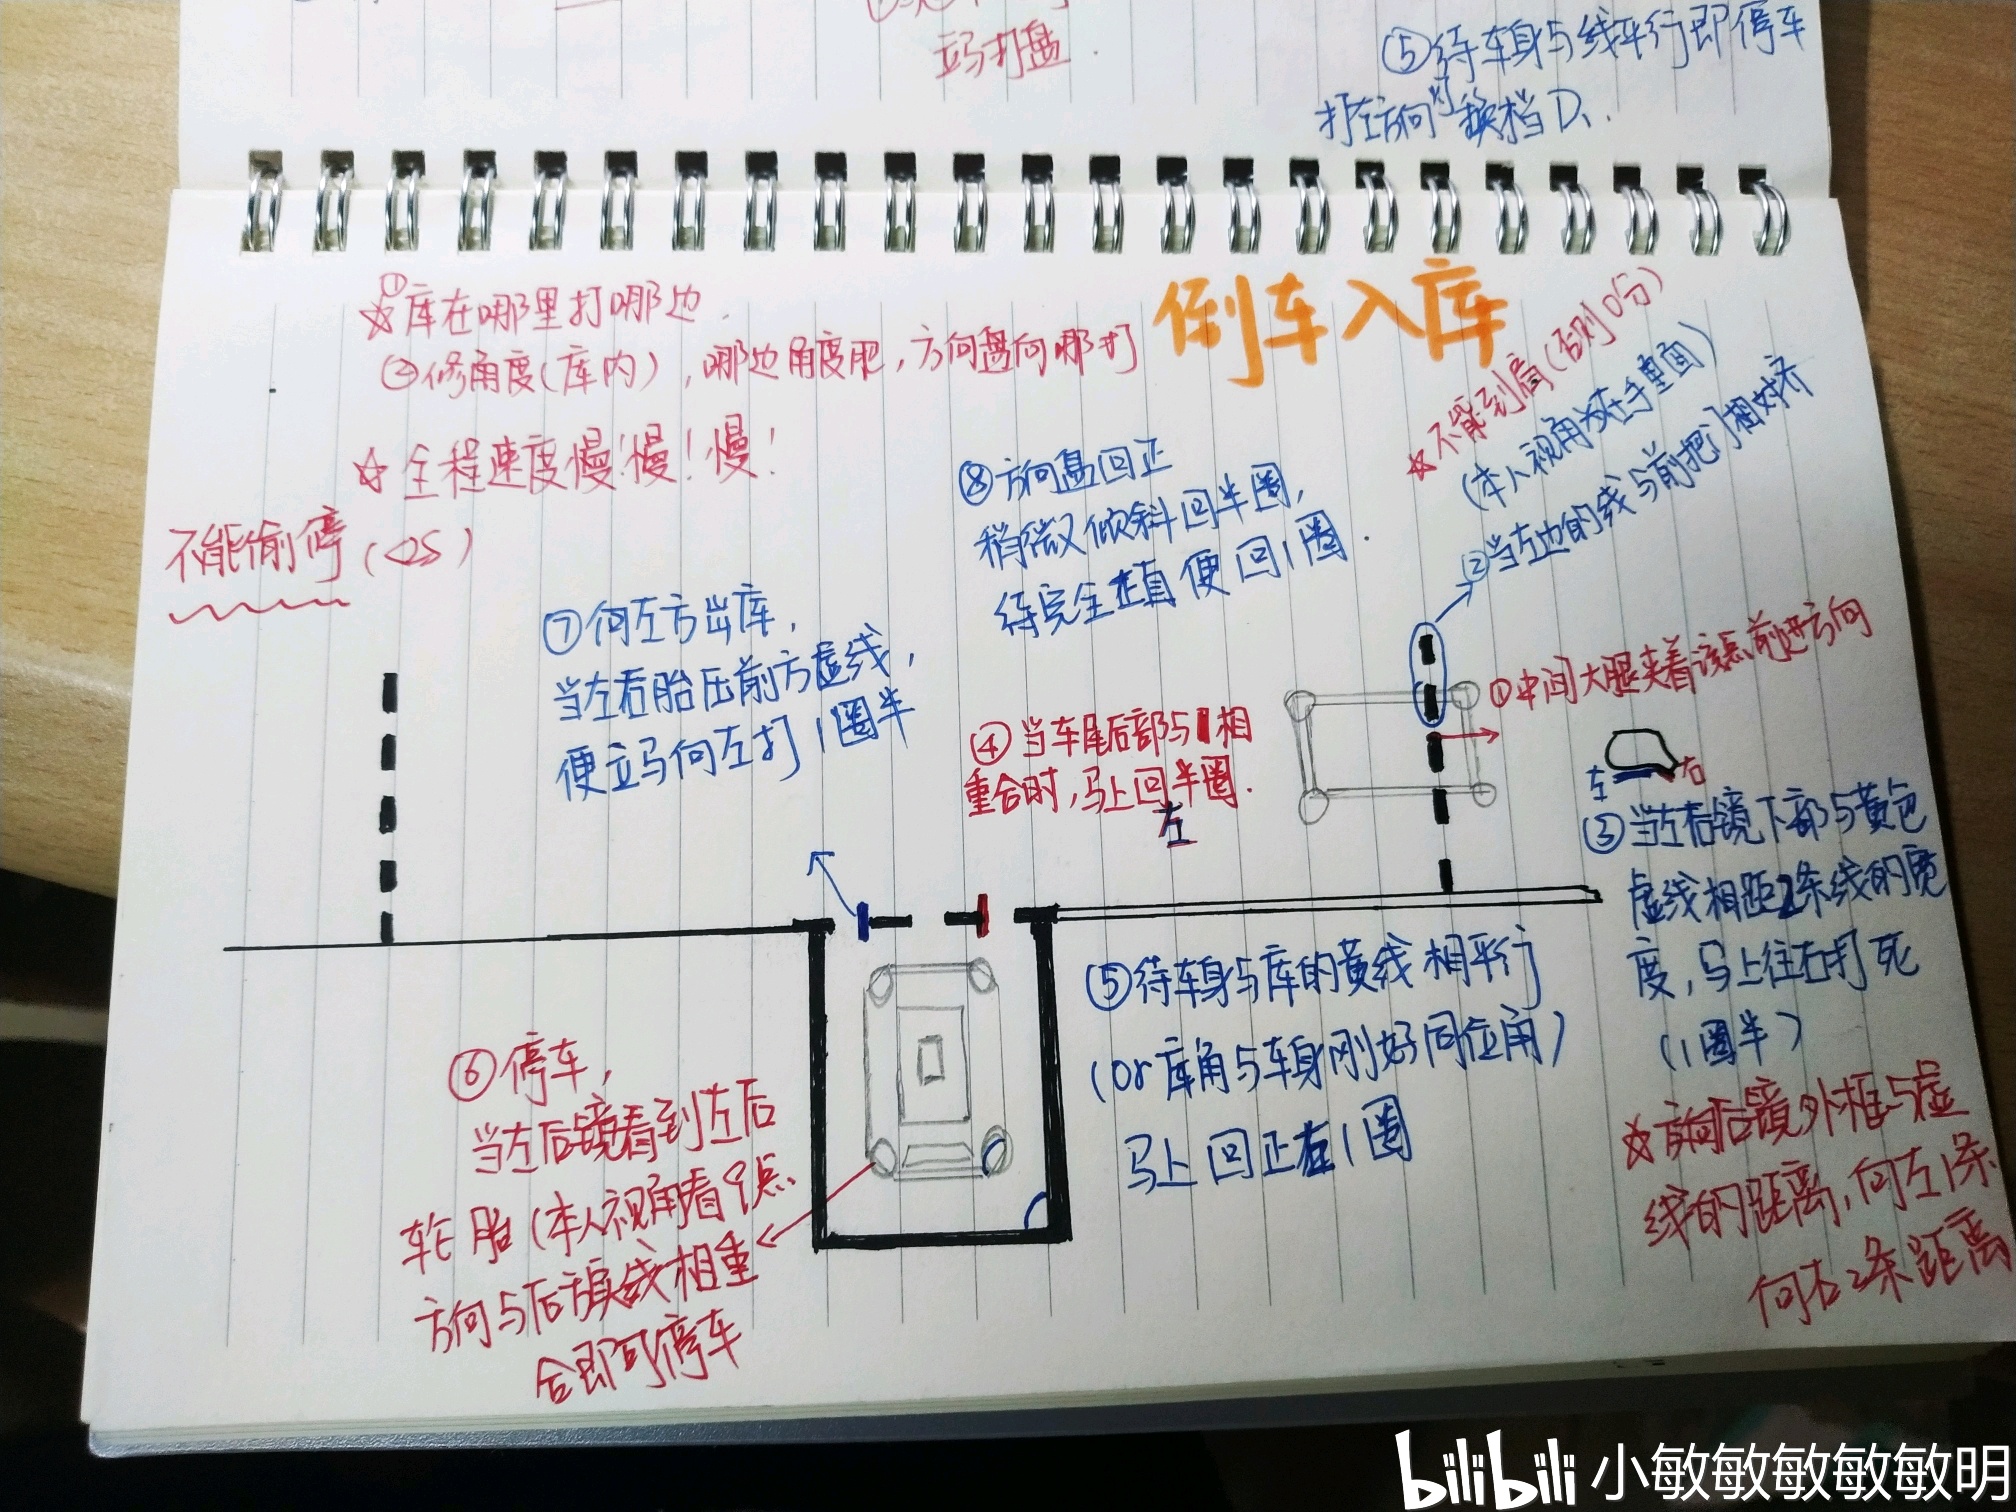 立马打盘.
⑤待车身与线平行即停车
打左方向灯 换档D.
倒车入库
☆①库在哪里打哪边.
②修角度(库内),哪边角度肥,方向盘向哪打
☆全程速度慢!慢!慢!
不能偷停(<2S)
①中间大腿夹着该点前进方向
☆不能到肩(否则0分)
(本人视角为在手里面)
②当左边的线与前把门相对齐
左 右
③当左后镜下部与黄色
虚线相距2条线的宽
度,马上往右打死
(1圈半)
☆方向后镜外框与虚
线的距离,向左1条
向右2条距离
④当车尾后部与 相
重合时,马上回半圈.
左
⑤待车身与库的黄线相平行
(or库角与车身刚好同位角)
马上回正 1圈
⑥停车,
当左后镜看到左后
轮胎(本人视角看 点
方向与后方实线相重
合即可停车
⑦向左方出库,
当左右胎压前方虚线,
便立马向左打1圈半
⑧方向盘回正
稍微又倾斜回半圈,
待完全正直便回1圈.
bilibili 小敏敏敏敏敏明